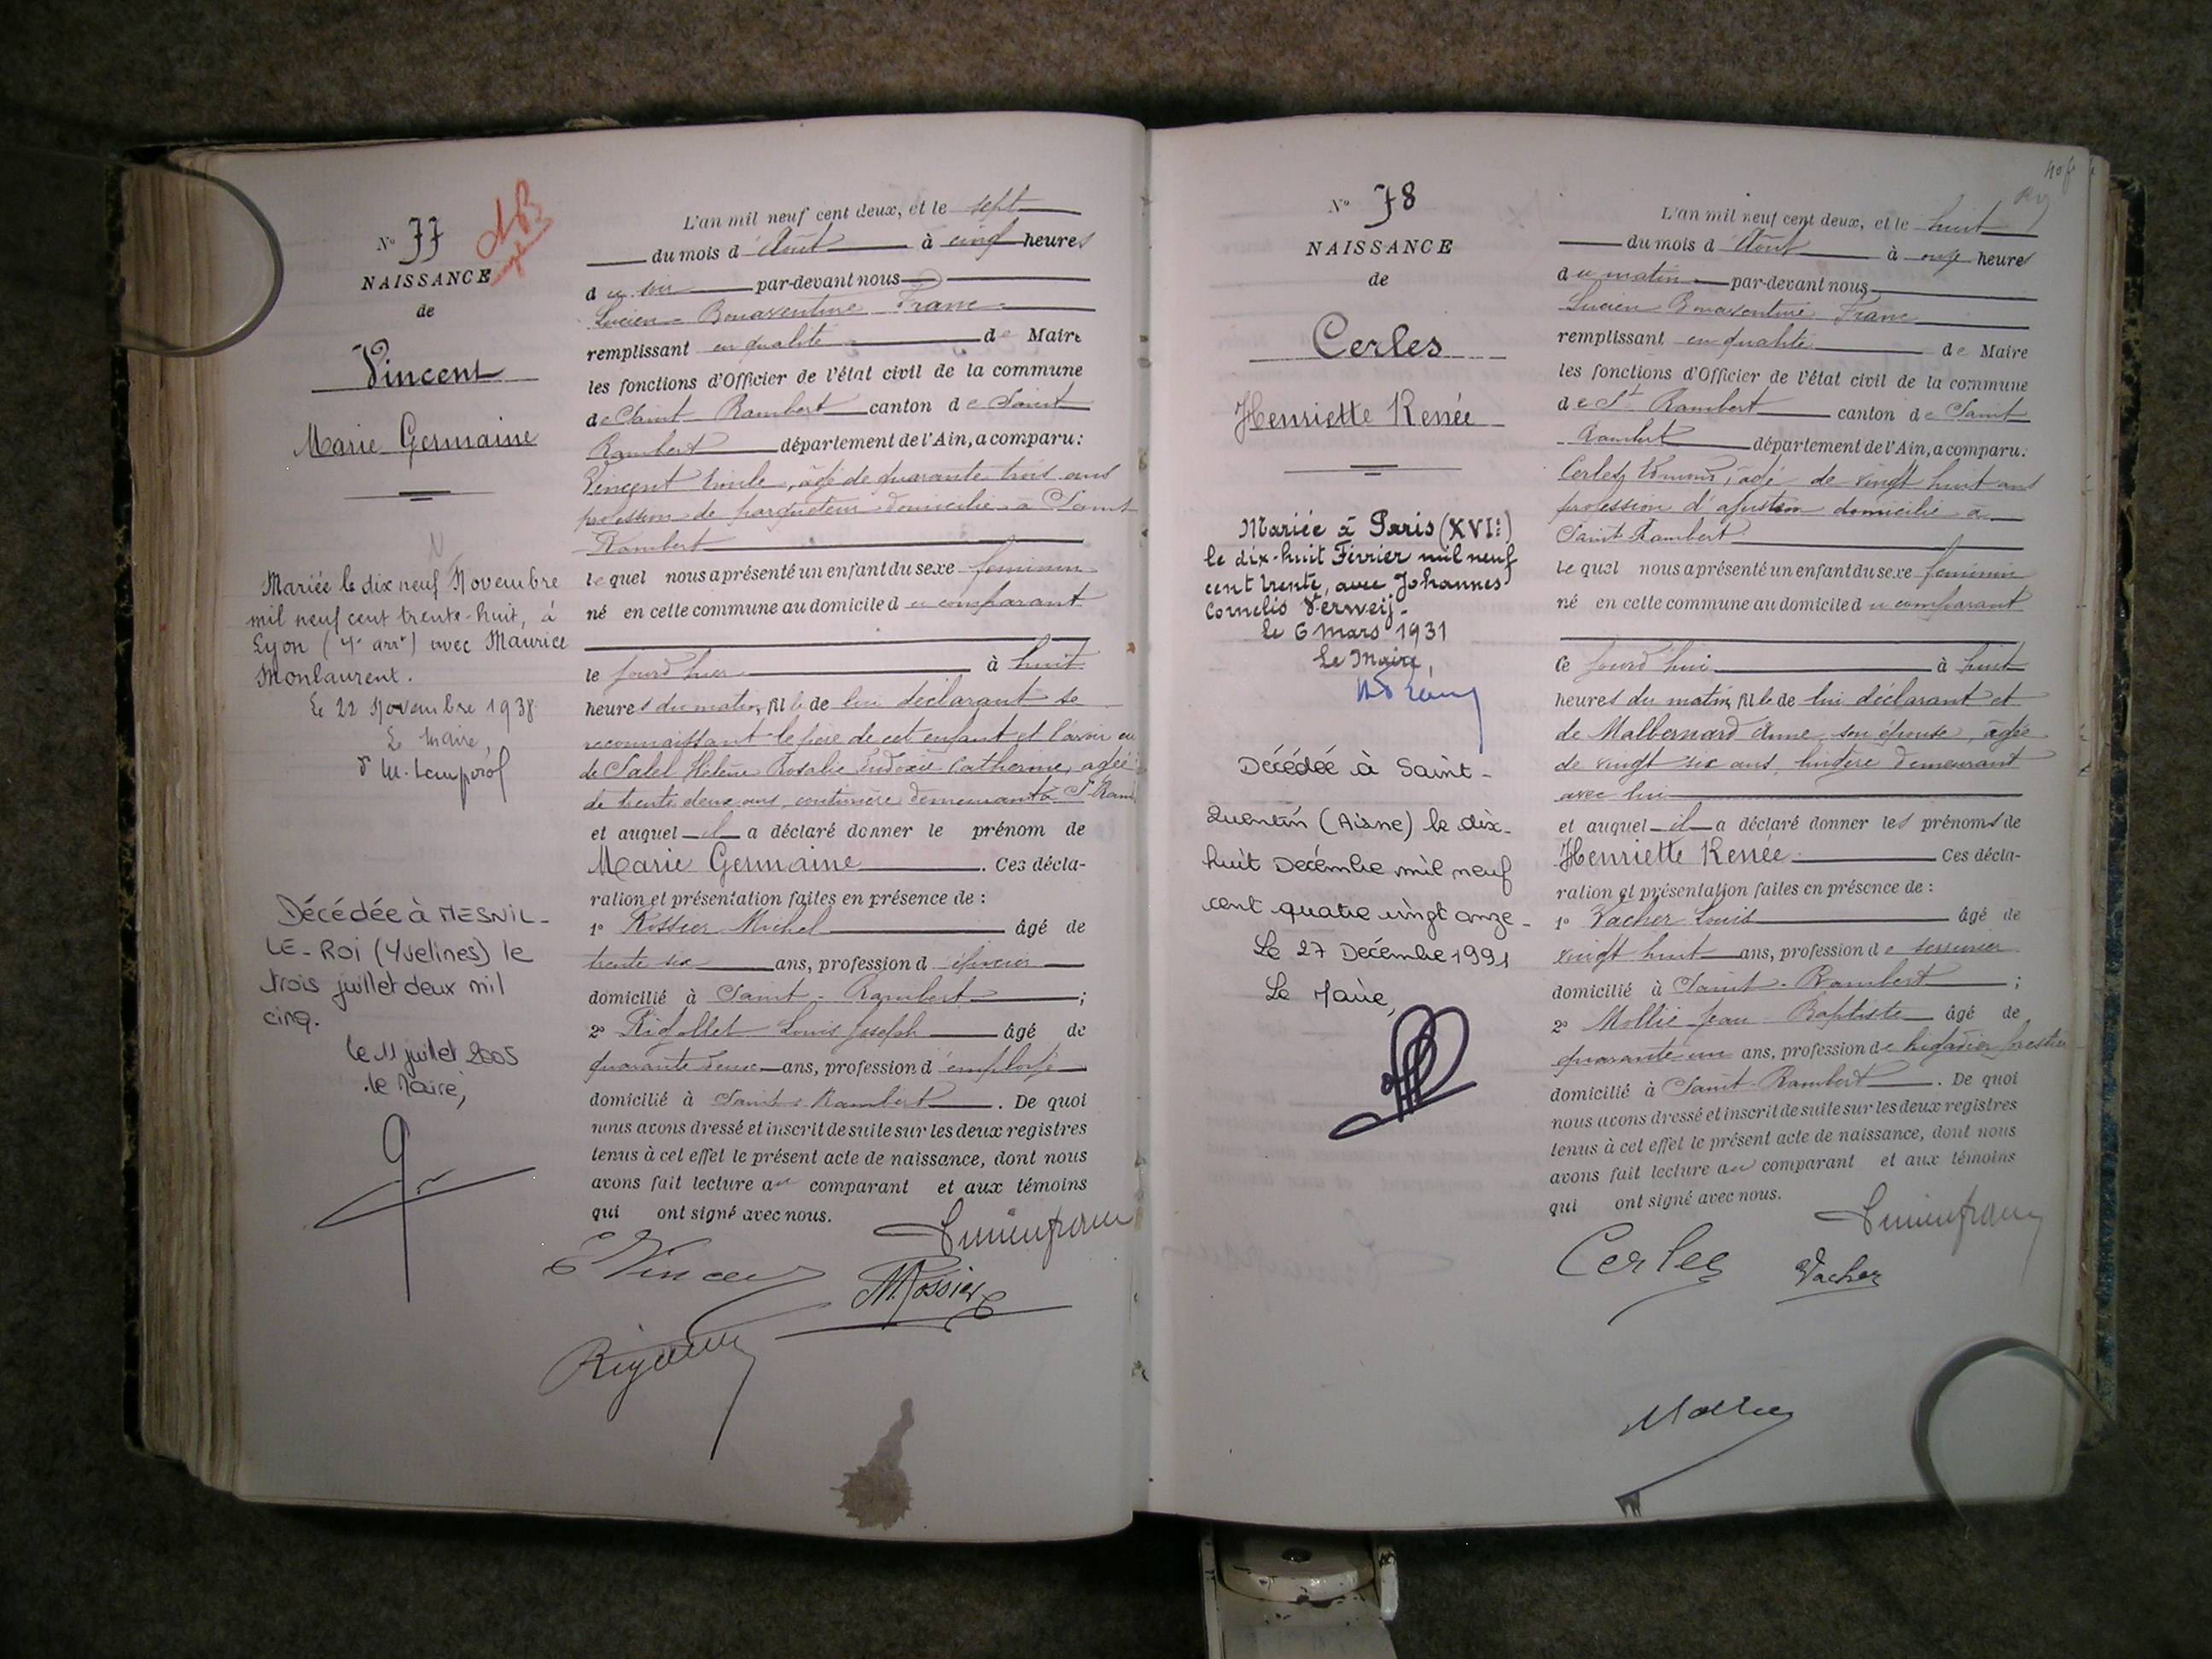 N° 77
NAISSANCE
de
Vincent
Marie Germaine
Mariée le dix neuf Novembre
mil neuf cent trente-huit, à
Lyon (4e arrt) avec Maurice
Monlaurent.
Le 22 Novembre 1938
Le Maire,
Décédée à MESNIL-
LE-ROI (Yvelines) le
trois juillet deux mil
cinq.
le 11 juillet 2005
le Maire,
L'an mil neuf cent deux, et le sept
du mois d'Août à cinq heures
du soir par-devant nous
Lucien Bonaventure Franc
remplissant en qualité de Maire
les fonctions d'Officier de l'état civil de la commune
de Saint Rambert canton de Saint
Rambert département de l'Ain, a comparu:
Vincent Emile, âgé de quarante trois ans
profession de parqueteur domicilié à Saint
Rambert
lequel nous a présenté un enfant du sexe féminin
né en cette commune au domicile du comparant
le jourd'hier à huit
heures du matin, fille de lui déclarant se
reconnaissant le père de cet enfant et l'avoir eu
de Salel Hélène Rosalie Eudoxie Catherine, âgée
de trente deux ans, couturière demeurant à St Ram
et auquel il a déclaré donner le prénom de
Marie Germaine. Ces décla-
ration et présentation faites en présence de :
1° Rossier Michel âgé de
trente six ans, profession d'épicier
domicilié à Saint-Rambert ;
2° Rigollet Louis Joseph âgé de
quarante deux ans, profession d'employé
domicilié à Saint-Rambert. De quoi
nous avons dressé et inscrit de suite sur les deux registres
tenus à cet effet le présent acte de naissance, dont nous
avons fait lecture au comparant et aux témoins
qui ont signé avec nous.
Lucien franc
E Vincent
M. Rossier
N° 78
NAISSANCE
de
Cerles
Henriette Renée
Mariée à Paris (XVI:)
le dix-huit Février mil neuf
cent trente, avec Johannes
Cornelis Verweij.
Le 6 mars 1931
Le Maire,
Décédée à Saint-
Quentin (Aisne) le dix-
huit Décembre mil neuf
cent quatre vingt onze.
Le 27 Décembre 1991
Le Maire,
L'an mil neuf cent deux, et le huit
du mois d'Août à onze heures
du matin par-devant nous
Lucien Bonaventure Franc
remplissant en qualité de Maire
les fonctions d'Officier de l'état civil de la commune
de St Rambert canton de Saint
Rambert département de l'Ain, a comparu:
Cerles, âgé de vingt huit ans
profession d'ajusteur domicilié à
Saint-Rambert
lequel nous a présenté un enfant du sexe féminin
né en cette commune au domicile du comparant
Ce jourd'hui à huit
heures du matin, fille de lui déclarant et
de Malbernard Anne, son épouse, âgée
de vingt six ans, lingère demeurant
avec lui
et auquel il a déclaré donner les prénoms de
Henriette Renée. Ces décla-
ration et présentation faites en présence de :
1° Vacher Louis âgé de
vingt huit ans, profession de serrurier
domicilié à Saint-Rambert ;
2° Mollie Jean Baptiste âgé de
quarante un ans, profession de brigadier forestier
domicilié à Saint-Rambert. De quoi
nous avons dressé et inscrit de suite sur les deux registres
tenus à cet effet le présent acte de naissance, dont nous
avons fait lecture au comparant et aux témoins
qui ont signé avec nous.
Lucien franc
Cerles
Vacher
Mollie